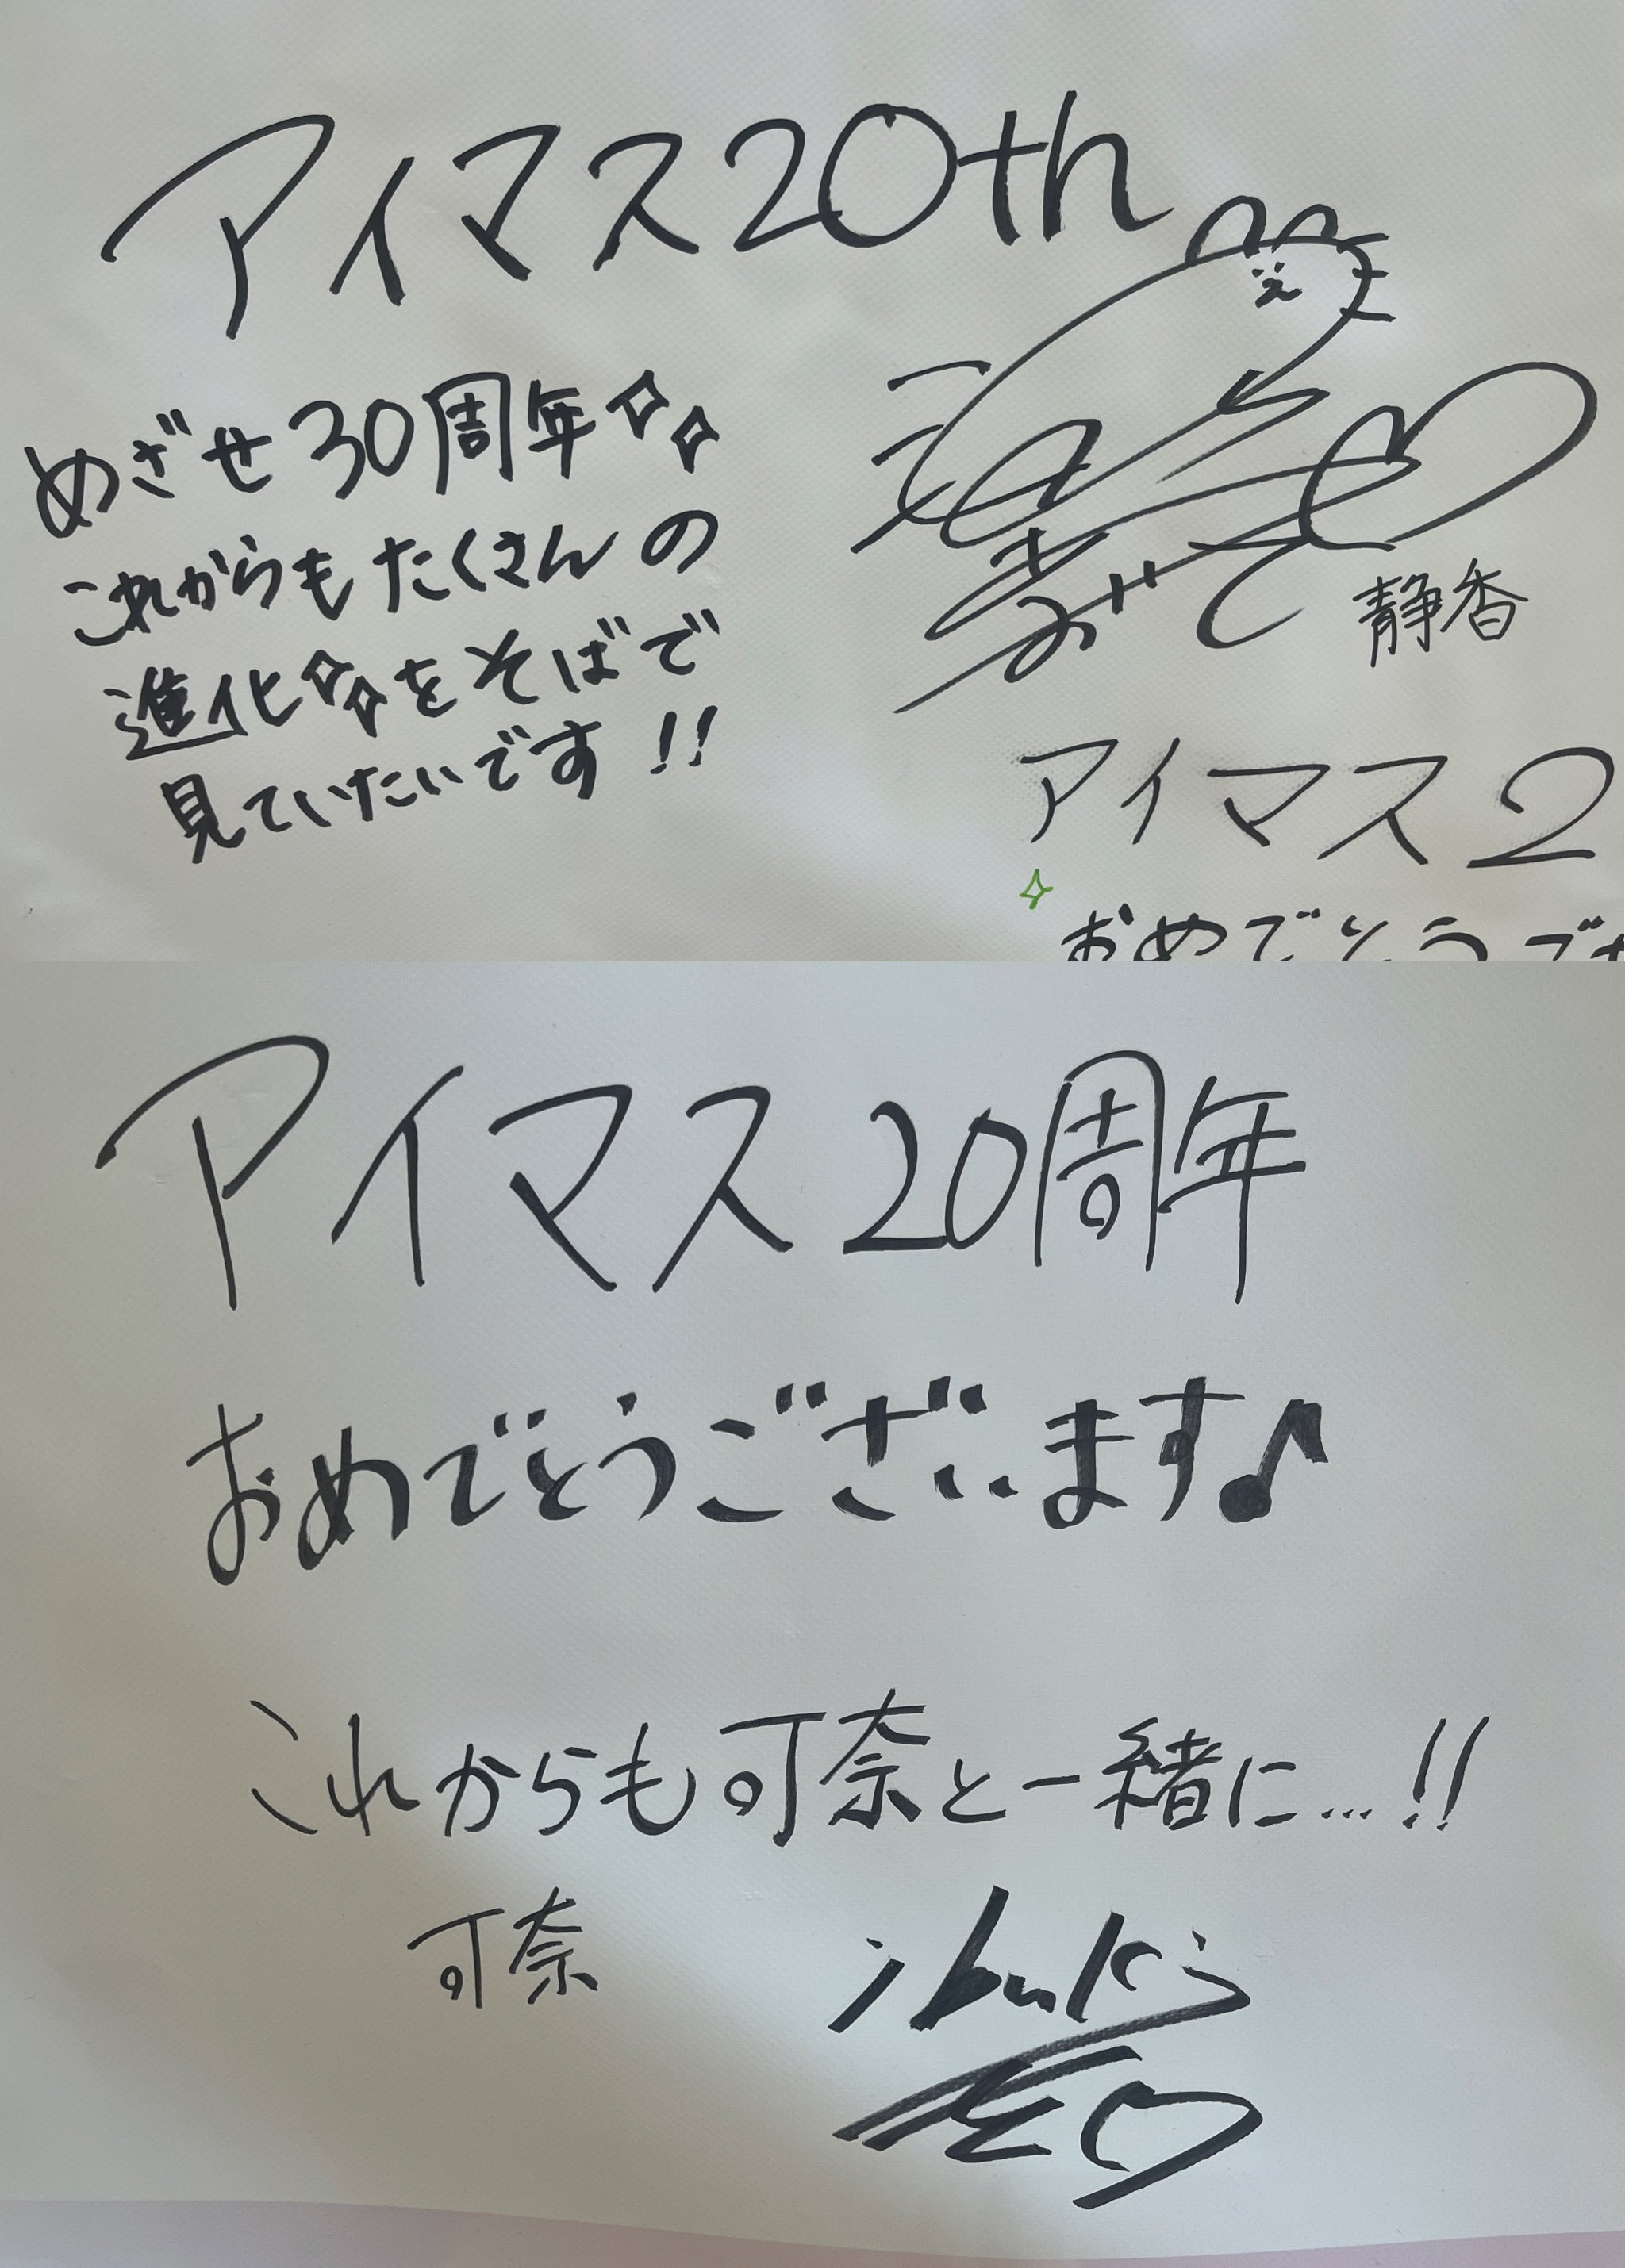 アイマス20th
めざせ30周年
これからもたくさんの
進化をそばで
見ていたいです!!
静香
アイマス2
おめでとうござ
アイマス20周年
おめでとうございます♪
これからも可奈と一緒に...!!
可奈
ibuki